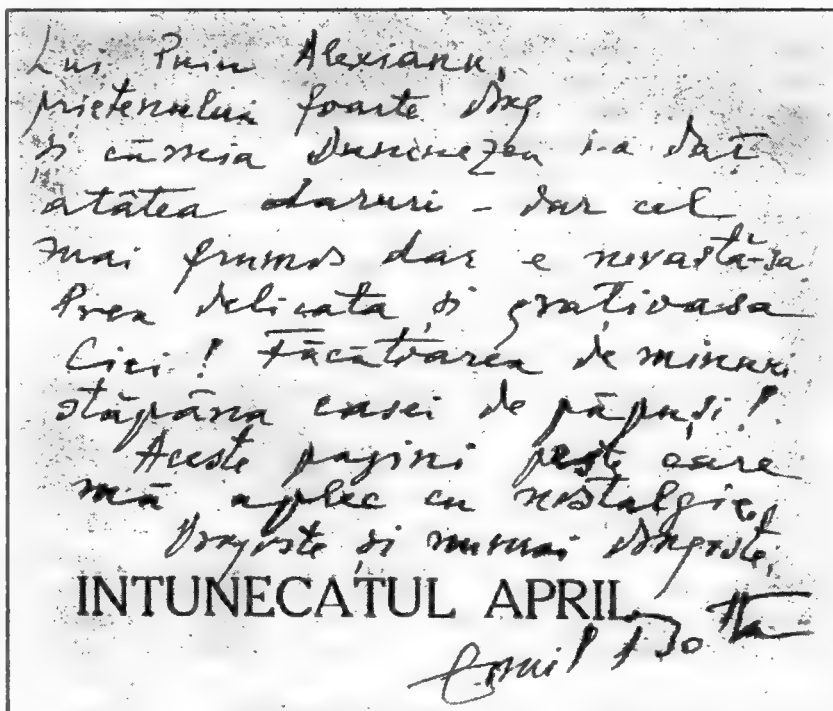 Lui Puiu Alexianu,
prietenului foarte drag
și căruia Dumnezeu i-a dat
atâtea daruri - dar cel
mai frumos dar e nevastă-sa
Prea delicata și grațioasa
Cici! Făcătoarea de minuni
stăpâna casei de păpuși!
Aceste pagini peste care
mă aplec cu nostalgie,
Dragoste și numai dragoste,
INTUNECATUL APRIL
Emil Botta